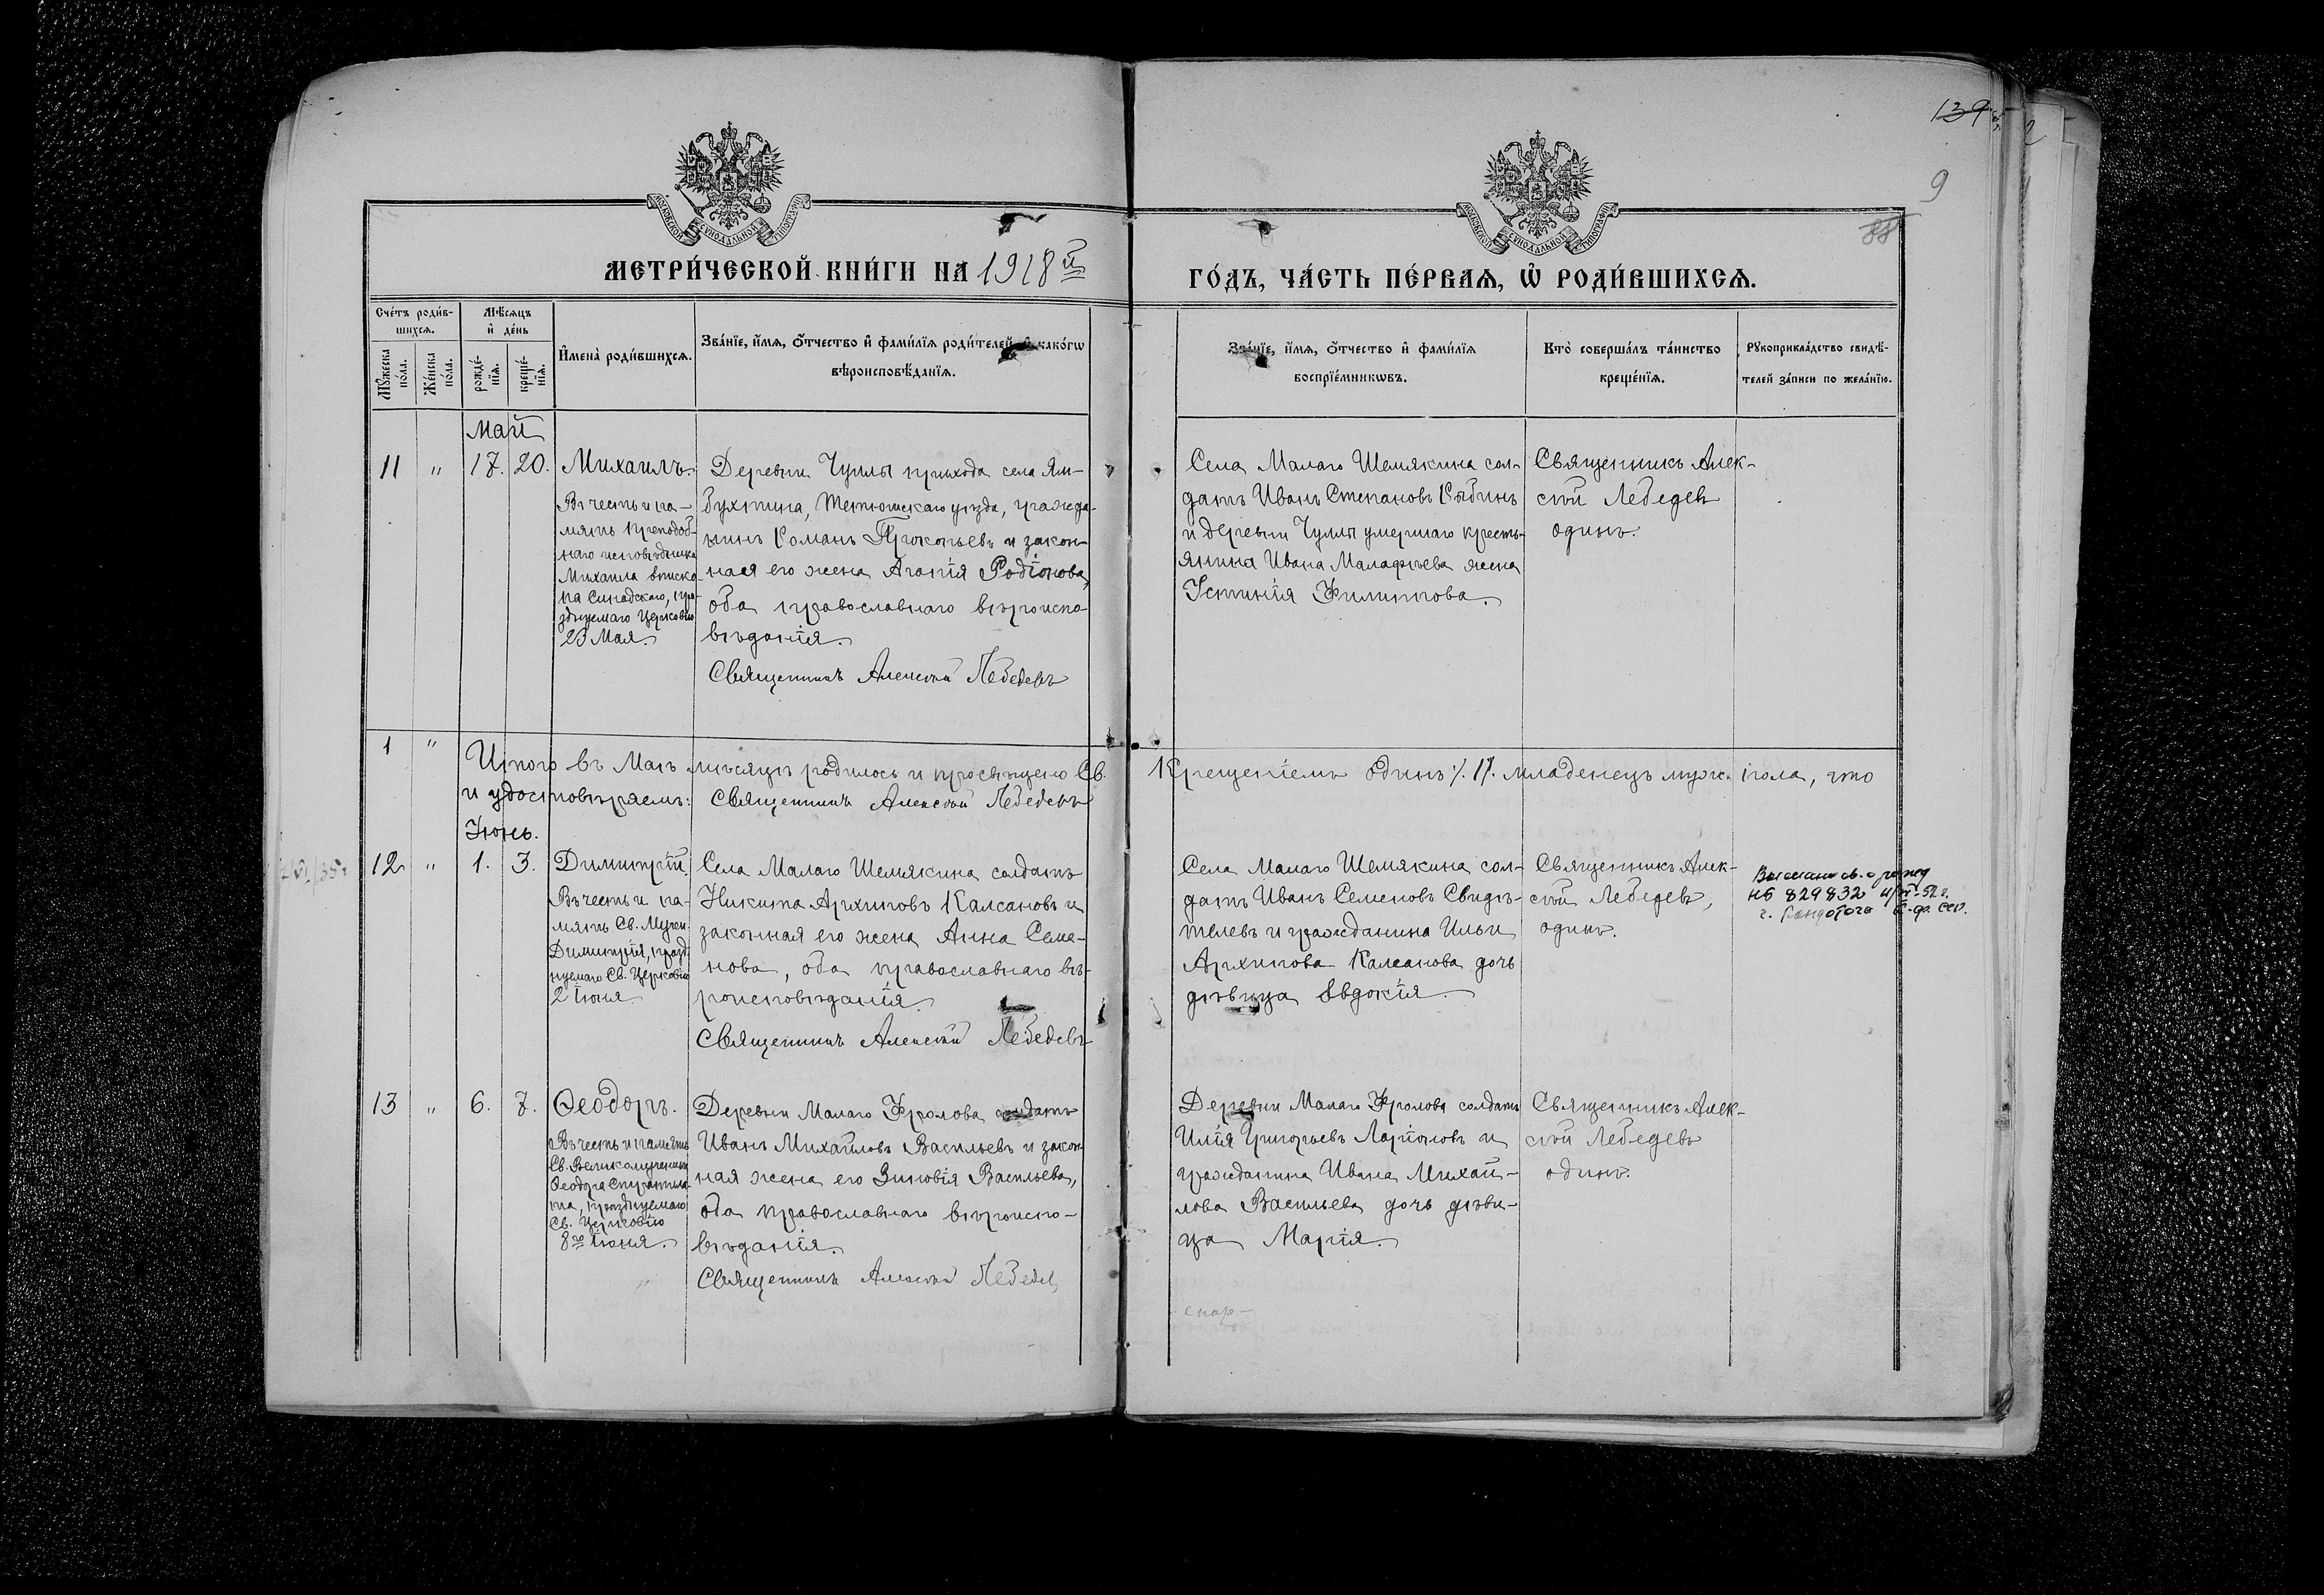 139
9
88
МОСКОВСКОЙ СѴНОДАЛЬНОЙ ТИПОГРАФІИ
МОСКОВСКОЙ СѴНОДАЛЬНОЙ ТИПОГРАФІИ
МЕТРИ́ЧЕСКОЙ КНИ́ГИ НА 1918й
ГО́ДЪ, ЧА́СТЬ ПЕ́РВАѦ, Ѽ РОДИ́ВШИХСѦ.
Сче́тъ роди́в-
шихсѧ.
Мѣ́сяцъ
и҆ де́нь
Мꙋ́жеска
по́ла.
Же́нска
по́ла.
рожде́-
нїѧ.
креще́-
нїѧ.
И҆мена̀ роди́вшихсѧ.
Зва́нїе, и҆́мѧ, ѻ҆́тчество и҆ фами́лїѧ роди́телей, и҆ како́гѡ
вѣроисповѣ́данїѧ.
Зва́нїе, и҆́мѧ, ѻ҆́тчество и҆ фами́лїѧ
воспрїе́мникѡвъ.
Кто̀ соверша́лъ та́инство
креще́нїѧ.
Рꙋкоприкла́дство свидѣ́-
телей за́писи по жела́нїю.
Май
11 " 17. 20. Михаилъ.
Въ честь и па-
мять преподоб-
наго исповѣдника
Михаила еписко-
па Синадскаго, пра-
зднуемаго Церковію
23 Мая.
Деревни Чуллы прихода села Ям-
бухтина, Тетюшскаго уѣзда, гражда-
нинъ Романъ Прокопьевъ и закон-
ная его жена Агапія Родіонова,
оба православнаго вѣроиспо-
вѣданія.
Священникъ Алексѣй Лебедевъ
Села Малаго Шемякина сол-
датъ Иванъ Степановъ Рыбинъ
и деревни Чуллы умершаго кресть-
янина Ивана Малафѣева жена
Устинія Филиппова.
Священникъ Алек-
сѣй Лебедевъ
одинъ.
1 "
Итого въ Маѣ мѣсяцѣ родилось и просвѣщено Св. Крещеніемъ одинъ /1/. младенецъ муж. пола, что
и удостовѣряемъ: Священникъ Алексѣй Лебедевъ
Іюнь.
12 " 1. 3. Димитрій.
Въ честь и па-
мять Св. Мучен.
Димитрія, празд-
нуемаго Св. Церковію
2 Іюня.
Села Малаго Шемякина солдатъ
Никита Архиповъ Калсановъ и
законная его жена Анна Семе-
нова, оба православнаго вѣ-
роисповѣданія.
Священникъ Алексѣй Лебедевъ
Села Малаго Шемякина сол-
датъ Иванъ Семеновъ Свидѣ-
телевъ и гражданина Ильи
Архипова Калсанова дочь
дѣвица Евдокія.
Священникъ Алек-
сѣй Лебедевъ,
одинъ.
св. о рожд
НБ 829832
13 " 6. 7. Ѳеодоръ.
Въ честь и память
Св. Великомученика
Ѳеодора Стратила-
та, празднуемаго
Св. Церковію
8го Іюня.
Деревни Малаго Фролова солдатъ
Иванъ Михайловъ Васильевъ и закон-
ная жена его Зиновія Васильева,
оба православнаго вѣроиспо-
вѣданія.
Священникъ Алексѣй Лебедев
Деревни Малаго Фролова солдатъ
Илія Григорьевъ Ларіоновъ и
гражданина Ивана Михай-
лова Васильева дочь дѣви-
ца Марія.
Священникъ Алек-
сѣй Лебедевъ
одинъ.